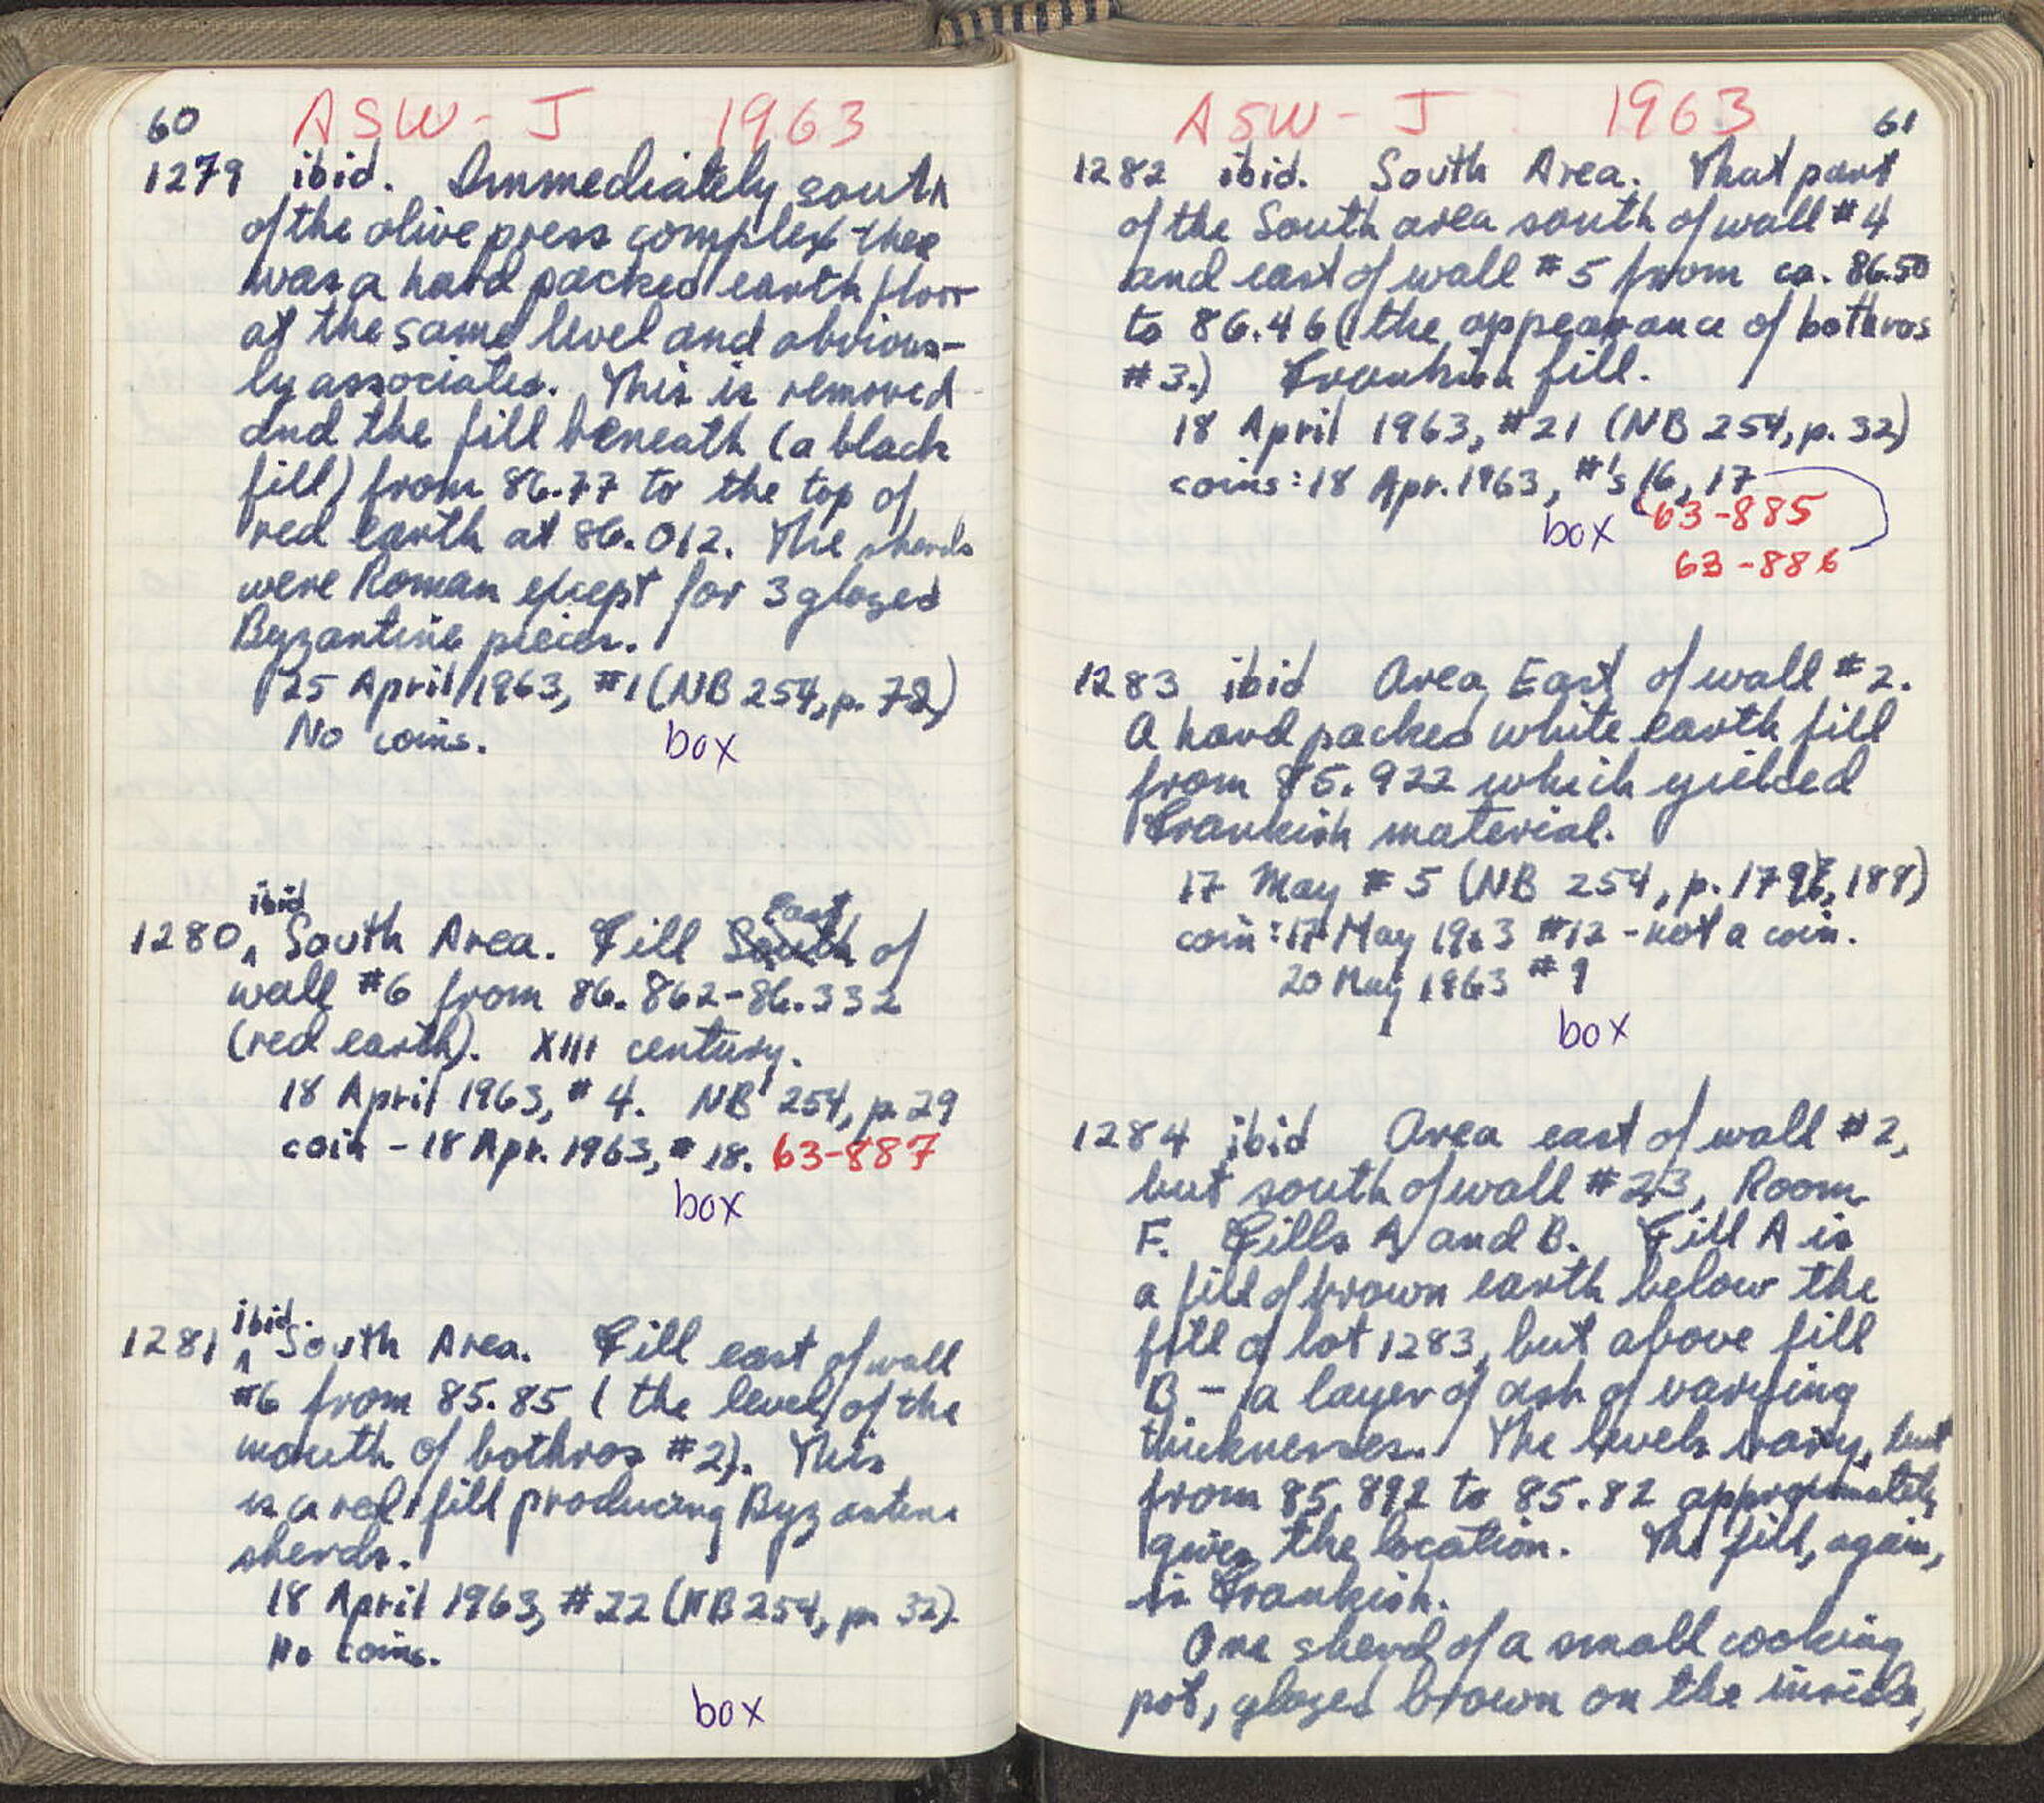 60 ASW-J 1963
1279 ibid. Immediately south
of the olive press complex there
was a hard packed earth floor
at the same level and obvious-
ly associated. This is removed
and the fill beneath (a black
fill) from 86.77 to the top of
red earth at 86.012. The sherds
were Roman except for 3 glazed
Byzantine pieces.
25 April 1963, #1 (NB 254, p. 72)
No coins. box
ibid East
1280 ^ South Area. Fill South of
wall #6 from 86.862-86.332
(red earth). XIII century.
18 April 1963, #4. NB 254, p. 29
coin - 18 Apr. 1963, #18. 63-887
box
ibid.
1281 ^ South Area. Fill east of wall
#6 from 85.85 (the level of the
mouth of bothros #2). This
is a red fill producing Byzantine
sherds.
18 April 1963, #22 (NB 254, p. 32).
No coins.
box
ASW-J 1963 61
1282 ibid. South Area. That part
of the South area south of wall #4
and east of wall #5 from ca. 86.50
to 86.46 (the appearance of bothros
#3.) Frankish fill.
18 April 1963, #21 (NB 254, p. 32)
coins: 18 Apr. 1963, #'s 16, 17
box 63-885
63-886
1283 ibid Area East of wall #2.
A hard packed white earth fill
from 85.922 which yielded
Frankish material.
17 May #5 (NB 254, p. 188)
coin: 17 May 1963 #12 - not a coin.
20 May 1963 #9
box
1284 ibid Area east of wall #2,
but south of wall #23, Room
F. Fills A and B. Fill A is
a fill of brown earth below the
fill of lot 1283, but above fill
B - a layer of ash of varying
thicknesses. The levels vary, but
from 85.892 to 85.82 approximately
gives the location. The fill, again,
is Frankish.
One sherd of a small cooking
pot, glazed brown on the inside,